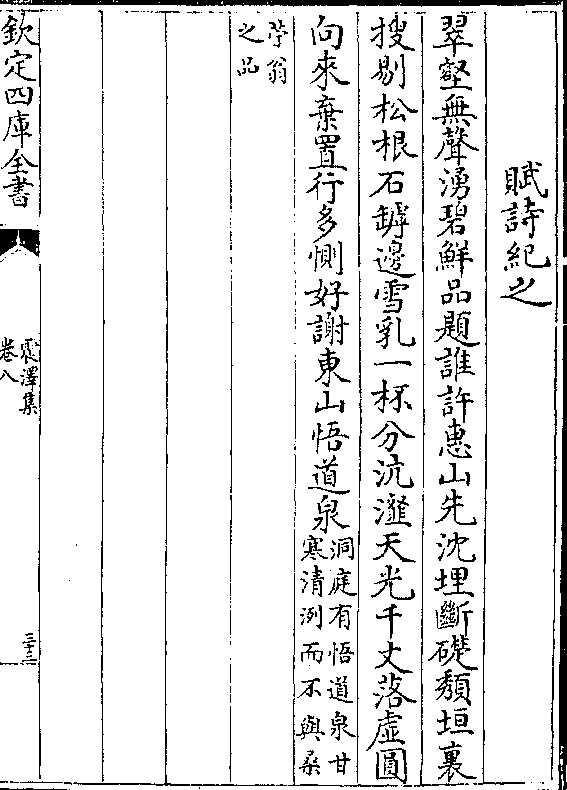 賦詩紀之
翠壑無聲湧碧鮮品題誰許惠山先沈埋斷礎頽垣裏
搜剔松根石罅邊雪乳一杯分沆瀣天光千丈落虛圓
向來棄置行多惻好謝東山悟道泉洞庭有悟道泉甘寒清洌而不與桑
苧翁之品
欽定四庫全書
震澤集
卷八
三十三